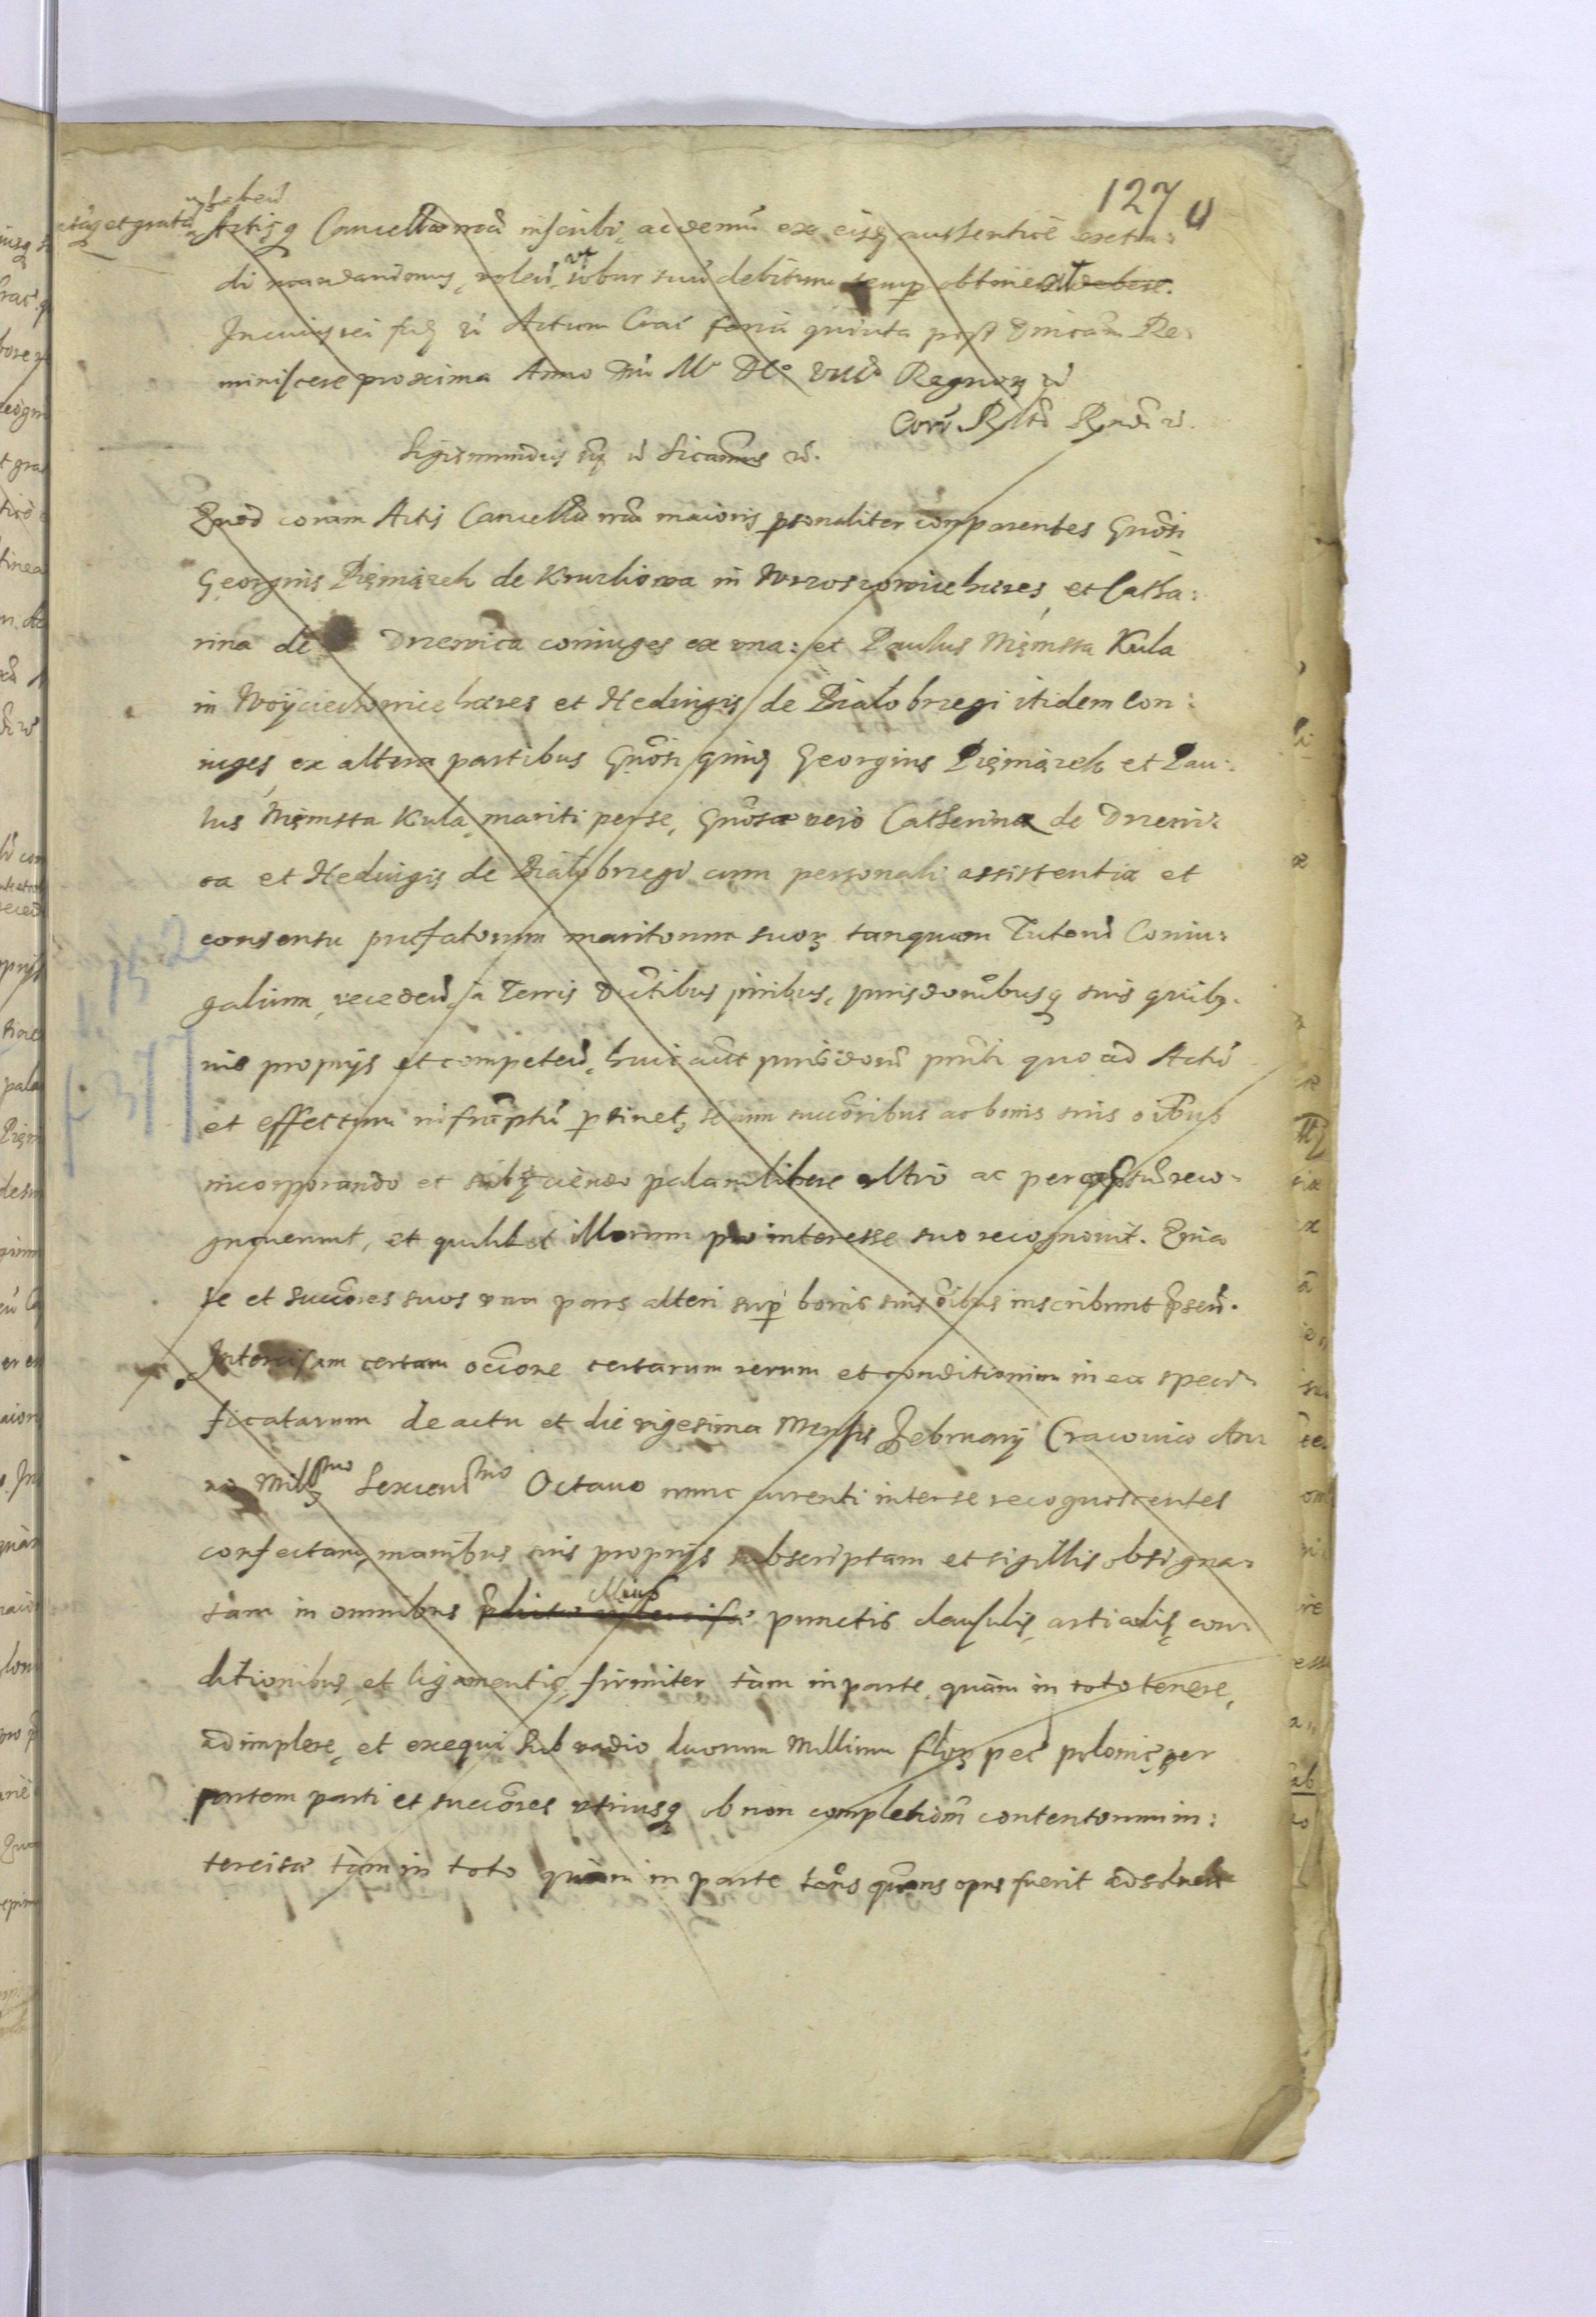 127
Actisq Cancellariae inscribi, ac demũ ex eisq authenticè extra:
di mandandomus, volen, ut robur suũ debitum semp obtineat debere.
In cuius rei fidẽ Actum Crac feria quinta post Dnicam Re:
miniscere proxima Anno Dni Mº DCº VIIIº Regnorȝ
Sigismundus Significamus
Quod coram Actis Cancellariae nrae maioris psonaliter comparentes Gnõsi
Georgius Pięniążek de Kruzliowa in Wrzosrowice haeres, et Catha:
rina de Drzewica coniuges ex una: et Paulus Męmsta Kula
in Woyciechowice haeres et Hedvigis de Bialobrzegi itidem Con:
iuges ex altera partibus Gnõsi quid Georgius Pięniążek et Pau:
lus Męmsta Kula mariti per se, Gnõsae verò Catherina de Drzewi:
ca et Hedvigis de Bialobrzegi cum personali assistentia et
consensu praefatorum maritorum suorȝ tanquam Tutorũ Coniu:
galium, receden à Terris ditibus iuribus, iurisdonibusq suis quib9:
uis proprijs et competen, huic aut iurisdoni pnti quo ad Actũ
et effectum infrascriptũ ptinet, se cum succoribus ac bonis suis oibus
incorporando et subijciendo palam libere ultrò ac per expressũ reco:
gnouerunt, et quilibet illorum pro interesse suo recognouit. Quia
se et succores suos una pars alteri sup bonis suis oibus inscribunt psen.
Intercisam certam ocione certarum rerum et conditionum in ea speci:
ficatarum de actu et die vigesima Mensis February Cracouiae An:
no Mill smo Sexcen smo Octauo nunc curenti inter se recognoscentes
confectam, manibus suis proprijs subscriptam et sigillis obsigna:
tam in omnibus illius punctis clausulis, articulis, con:
ditionibus, et ligamentis, firmiter tàm in parte, quàm in toto tenere,
adimplere, et exequi sub vadio duorum Millium florȝ pec polonic, per
partem parti et succores utriusq ob non completiom contentorum in:
tercisae tàm in toto quàm in parte tões quões opus fuerit adsoluen